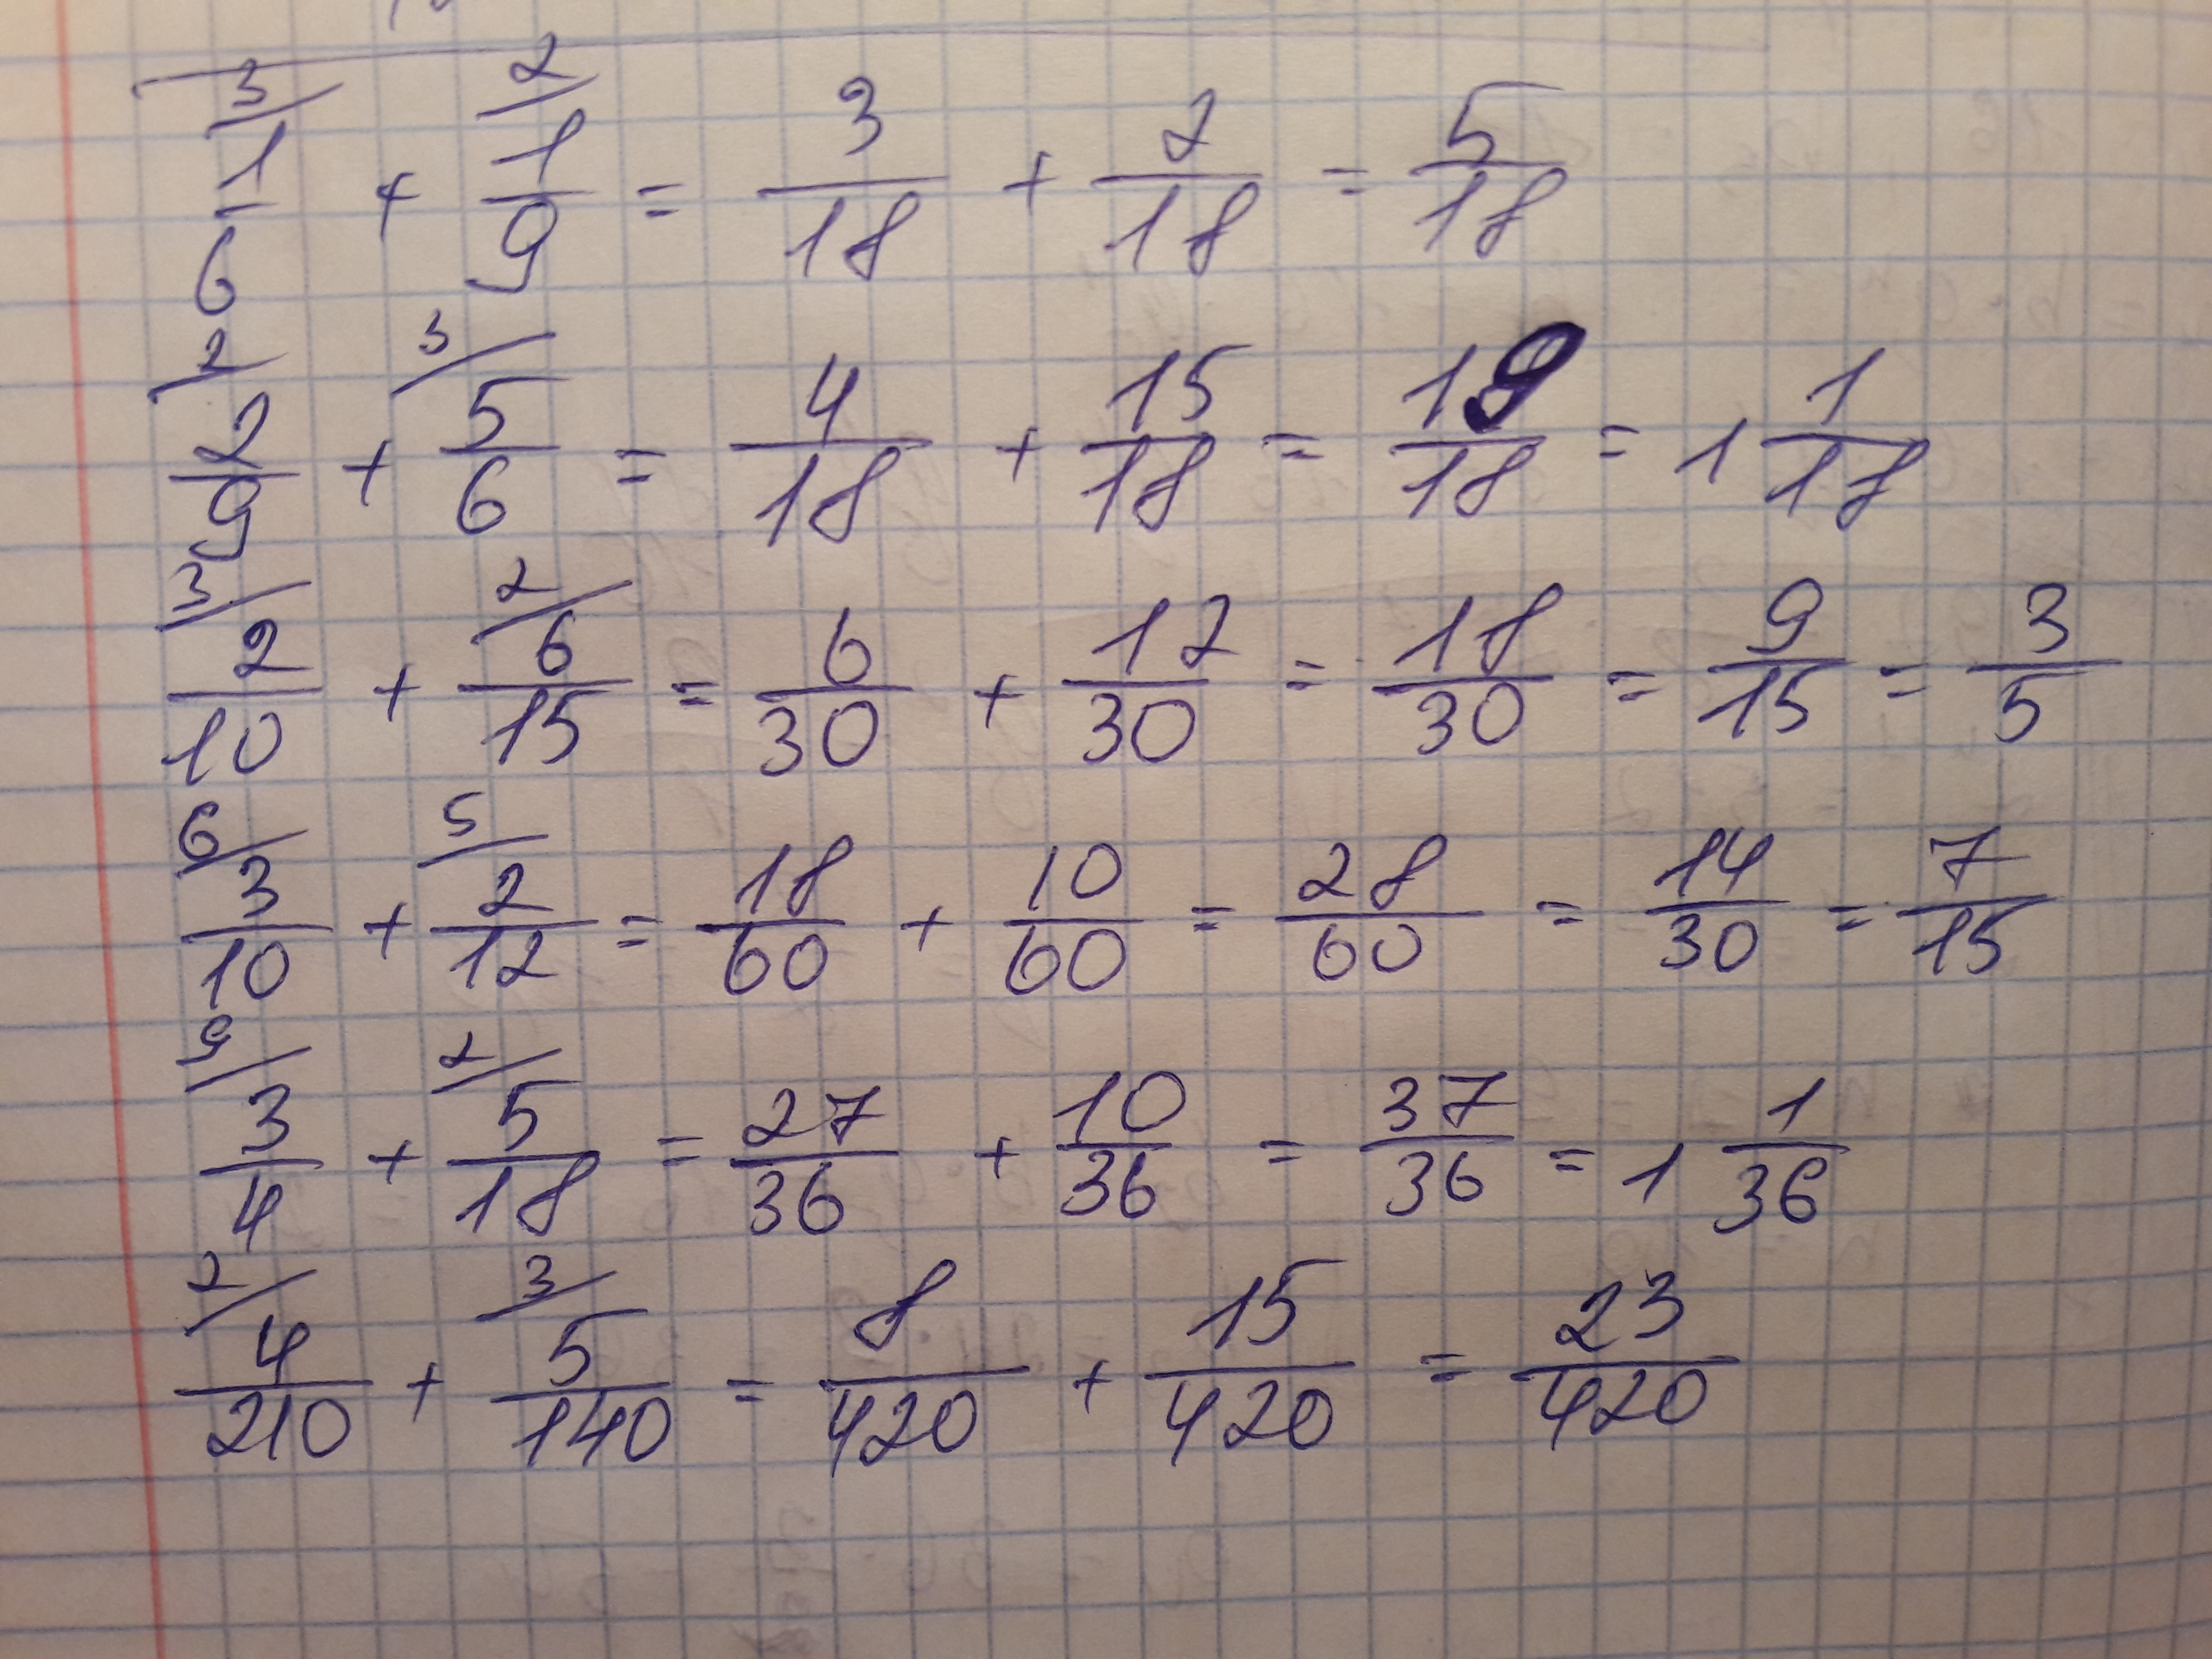 3/ 1/6 + 2/ 1/9 = 3/18 + 2/18 = 5/18
2/ 2/9 + 3/ 5/6 = 4/18 + 15/18 = 19/18 = 1 1/18
3/ 2/10 + 2/ 6/15 = 6/30 + 12/30 = 18/30 = 9/15 = 3/5
6/ 3/10 + 5/ 2/12 = 18/60 + 10/60 = 28/60 = 14/30 = 7/15
9/ 3/4 + 2/ 5/18 = 27/36 + 10/36 = 37/36 = 1 1/36
2/ 4/210 + 3/ 5/140 = 8/420 + 15/420 = 23/420